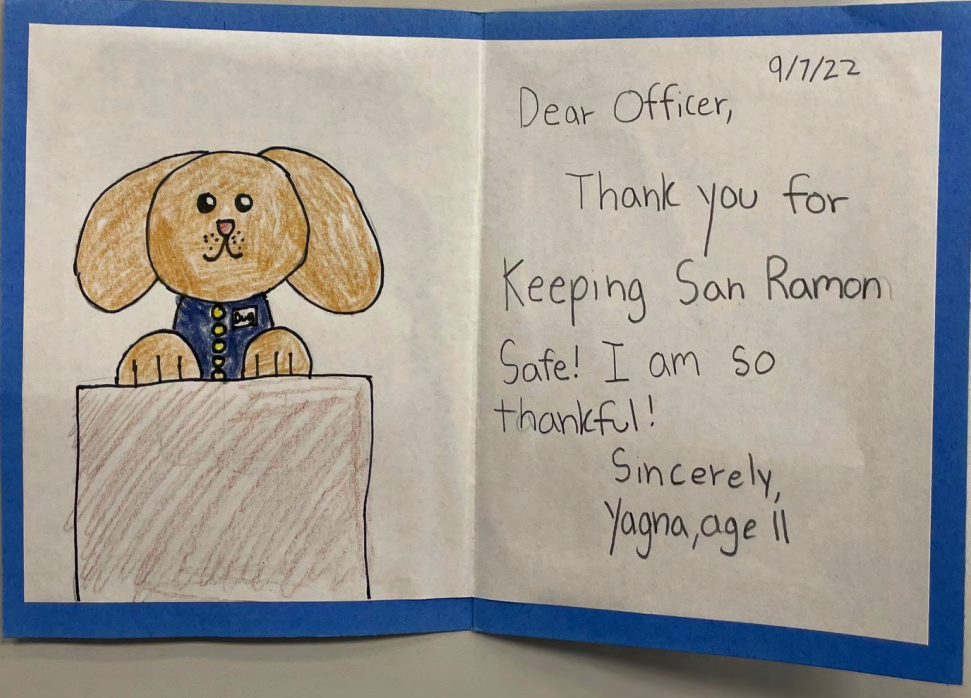 9/7/22
Dear Officer,
Thank you for
Keeping San Ramon
Safe! I am so
thankful!
Sincerely,
Yagna, age 11